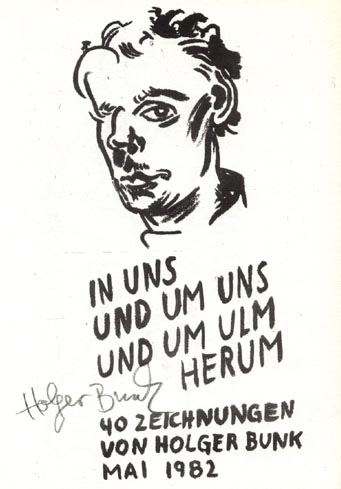 IN UNS
UND UM UNS
UND UM ULM
HERUM
Holger Bunk
40 ZEICHNUNGEN
VON HOLGER BUNK
MAI 1982